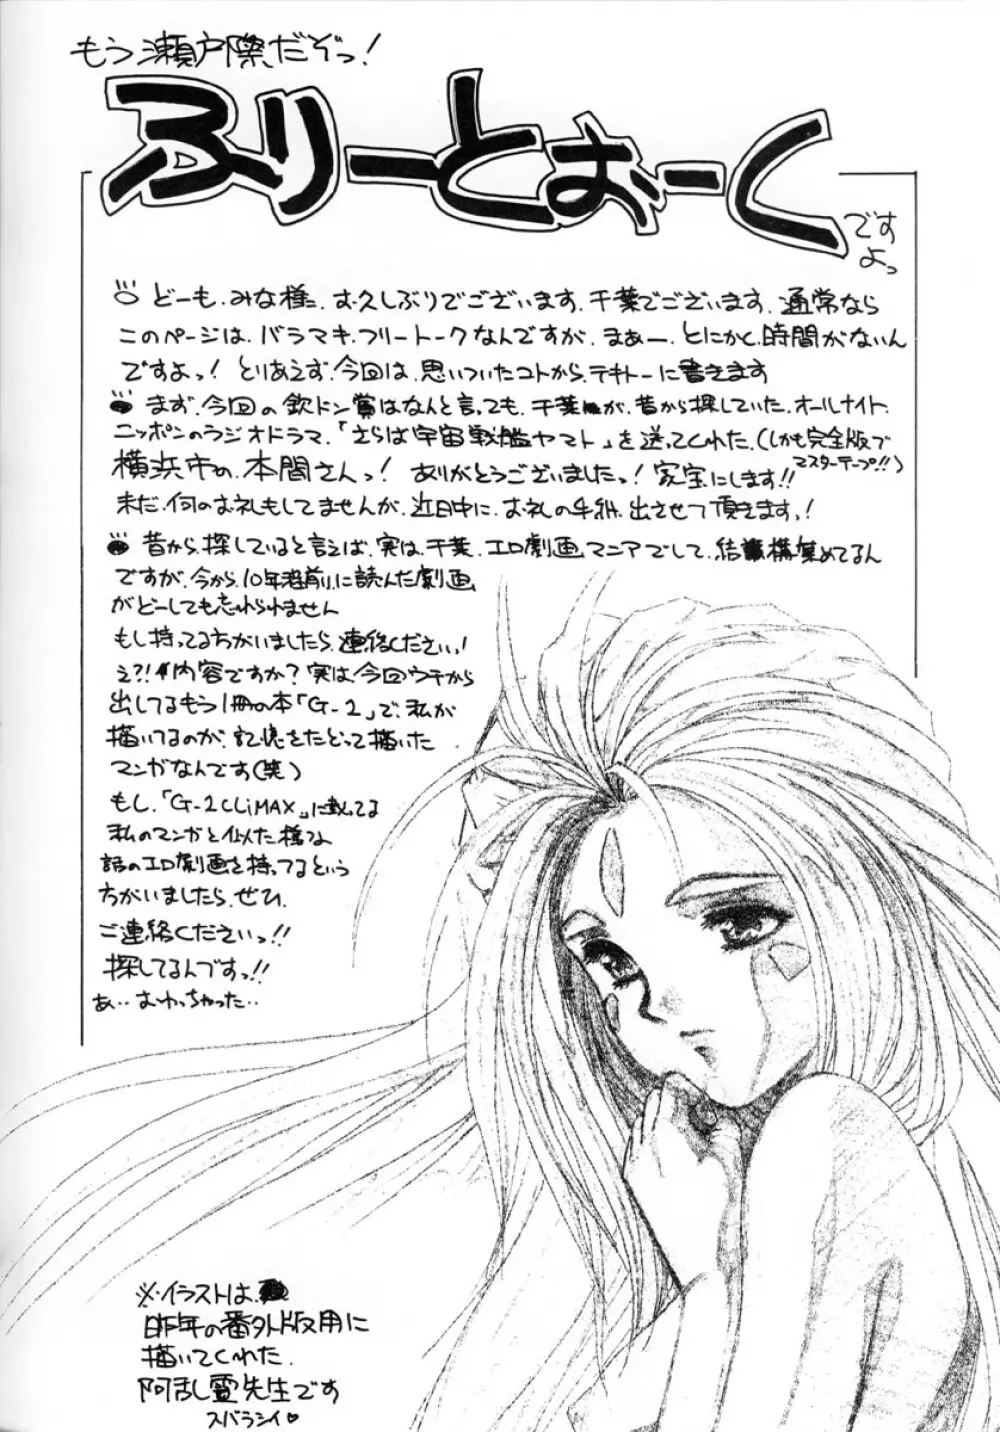 もう瀬戸際だぞっ!
ふりーとぉーく
ですよっ
どーも、みな様、お久しぶりでございます、千葉でございます、通常なら
このページは、バラマキ、フリートークなんですが、まぁー、とにかく、時間がないん
ですよっ! とりあえず、今回は、思いついたコトから、テキトーに書きます
まず、今回の欽ドン賞はなんと言っても、千葉が、昔から探していた、オールナイト、
ニッポンのラジオドラマ、「さらば宇宙戦艦ヤマト」を送ってくれた、(しかも完全版で
マスターテープ!!)
横浜市の、本間さんっ! ありがとうございましたっ! 家宝にします!!
まだ、何のお礼もしてませんが、近日中に、お礼の手紙、出させて頂きます、!
昔から、探していると言えば、実は、千葉、エロ劇画マニアでして、結構集めてるん
ですが、今から、10年程前に読んだ劇画
がどーしても忘れられません
もし持ってる方がいましたら、連絡ください、!
え?!内容ですか?実は、今回ウチから
出してるもう1冊の本「G-2」で、私が
描いてるのが、記憶をたどって描いた
マンガなんです(笑)
もし、「G-2 CLiMAX」に載ってる
私のマンガと似た様な
話のエロ劇画を持ってるという
方がいましたら、ぜひ、
ご連絡くださいっ!!
探してるんですっ!!
あ‥おわっちゃった‥
※イラストは、
昨年の番外版用に
描いてくれた、
阿乱霊先生です
スバラシイ♡